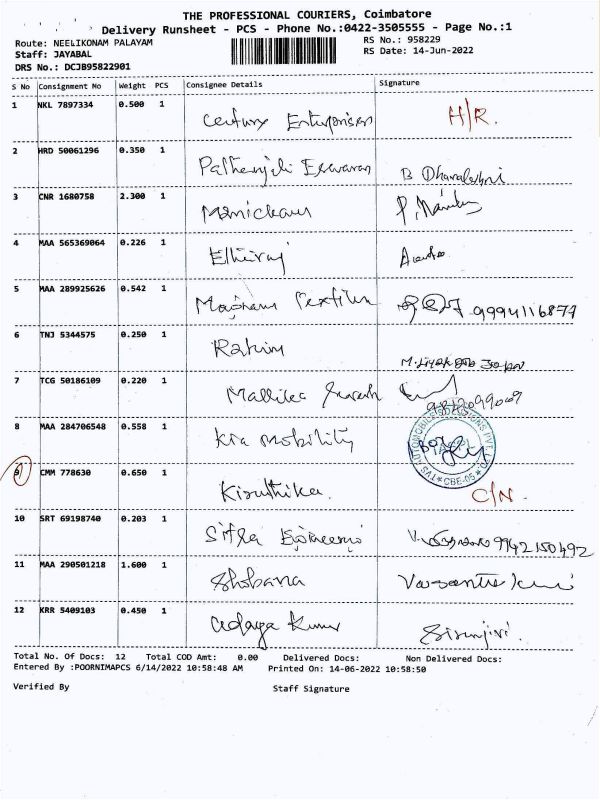 THE PROFESSIONAL COURIERS, Coimbatore
Delivery Runsheet - PCS - Phone No.:0422-3505555 - Page No.:1
Route: NEELIKONAM PALAYAM
RS No.: 958229
Staff: JAYABAL
RS Date: 14-Jun-2022
DRS No.: DCJB95822901
S No Consignment No Weight PCS Consignee Details Signature
1 NKL 7897334 0.500 1 Century Enterprises H/R.
2 HRD 50061296 0.350 1 Pathanjali Eswaran B Dhanalakshmi
3 CNR 1680758 2.300 1 Manickam
4 MAA 565369064 0.226 1 Elhiraj
5 MAA 289925626 0.542 1 Textiles 9994116877
6 TNJ 5344575 0.250 1 Rahim
7 TCG 50186109 0.220 1 Mallika Suresh
8 MAA 284706548 0.558 1 Kia Mobility
TVS AUTOMOBILE SOLUTIONS PVT. LTD. CBE-05
9 CMM 778630 0.650 1 Kiruthika. C/N.
10 SRT 69198740 0.203 1 9942150492
11 MAA 290501218 1.600 1 Shobana
12 KRR 5409103 0.450 1 Udaya Kumar Sirinjivi.
Total No. Of Docs: 12 Total COD Amt: 0.00 Delivered Docs: Non Delivered Docs:
Entered By :POORNIMAPCS 6/14/2022 10:58:48 AM Printed On: 14-06-2022 10:58:50
Verified By Staff Signature